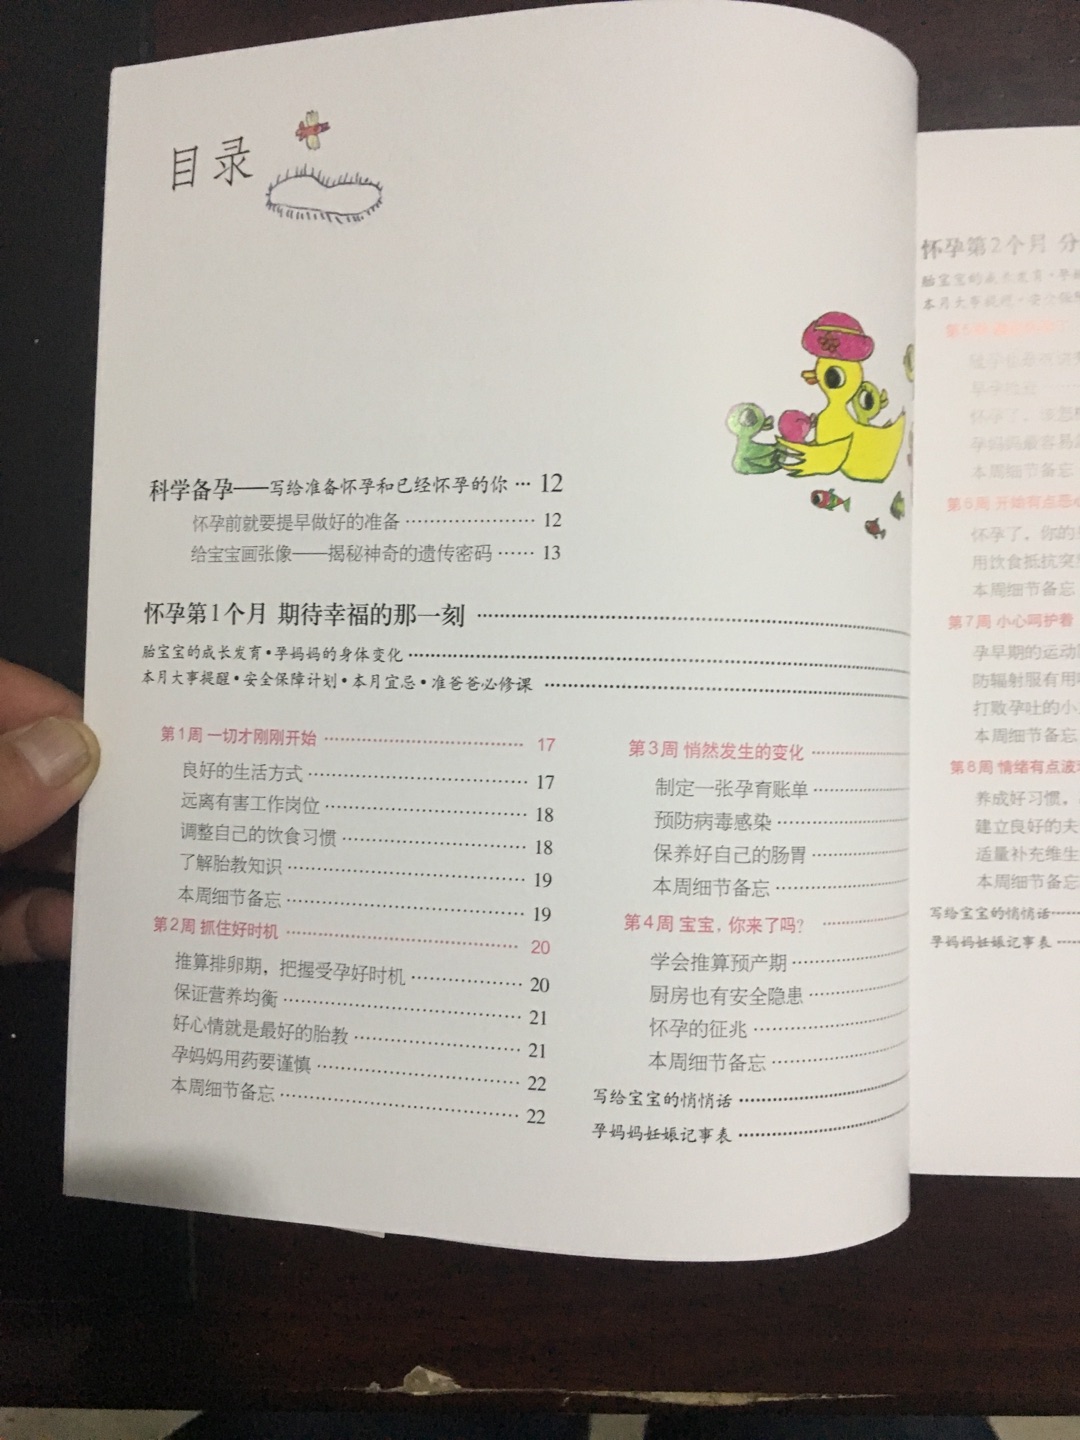 目录
科学备孕——写给准备怀孕和已经怀孕的你 ··· 12
怀孕前就要提早做好的准备 ···················· 12
给宝宝画张像——揭秘神奇的遗传密码 ······ 13
怀孕第1个月 期待幸福的那一刻
胎宝宝的成长发育·孕妈妈的身体变化
本月大事提醒·安全保障计划·本月宜忌·准爸爸必修课
第1周 一切才刚刚开始 ······ 17
良好的生活方式 ······ 17
远离有害工作岗位 ······ 18
调整自己的饮食习惯 ······ 18
了解胎教知识 ······ 19
本周细节备忘 ······ 19
第2周 抓住好时机 ······ 20
推算排卵期，把握受孕好时机 ······ 20
保证营养均衡 ······ 21
好心情就是最好的胎教 ······ 21
孕妈妈用药要谨慎 ······ 22
本周细节备忘 ······ 22
第3周 悄然发生的变化
制定一张孕育账单
预防病毒感染
保养好自己的肠胃
本周细节备忘
第4周 宝宝，你来了吗？
学会推算预产期
厨房也有安全隐患
怀孕的征兆
本周细节备忘
写给宝宝的悄悄话
孕妈妈妊娠记事表
怀孕第2个月 分
胎宝宝的成长发育·孕
本月大事提醒·安全保
第5周
早孕检查
怀孕了，该怎
孕妈妈最容易
本周细节备忘
第6周 开始有点恶心
怀孕了，你的
用饮食抵抗突
本周细节备忘
第7周 小心呵护着
孕早期的运动
防辐射服有用
打败孕吐的小
本周细节备忘
第8周 情绪有点波
养成好习惯，
建立良好的夫
适量补充维生
本周细节备忘
写给宝宝的悄悄话
孕妈妈妊娠记事表